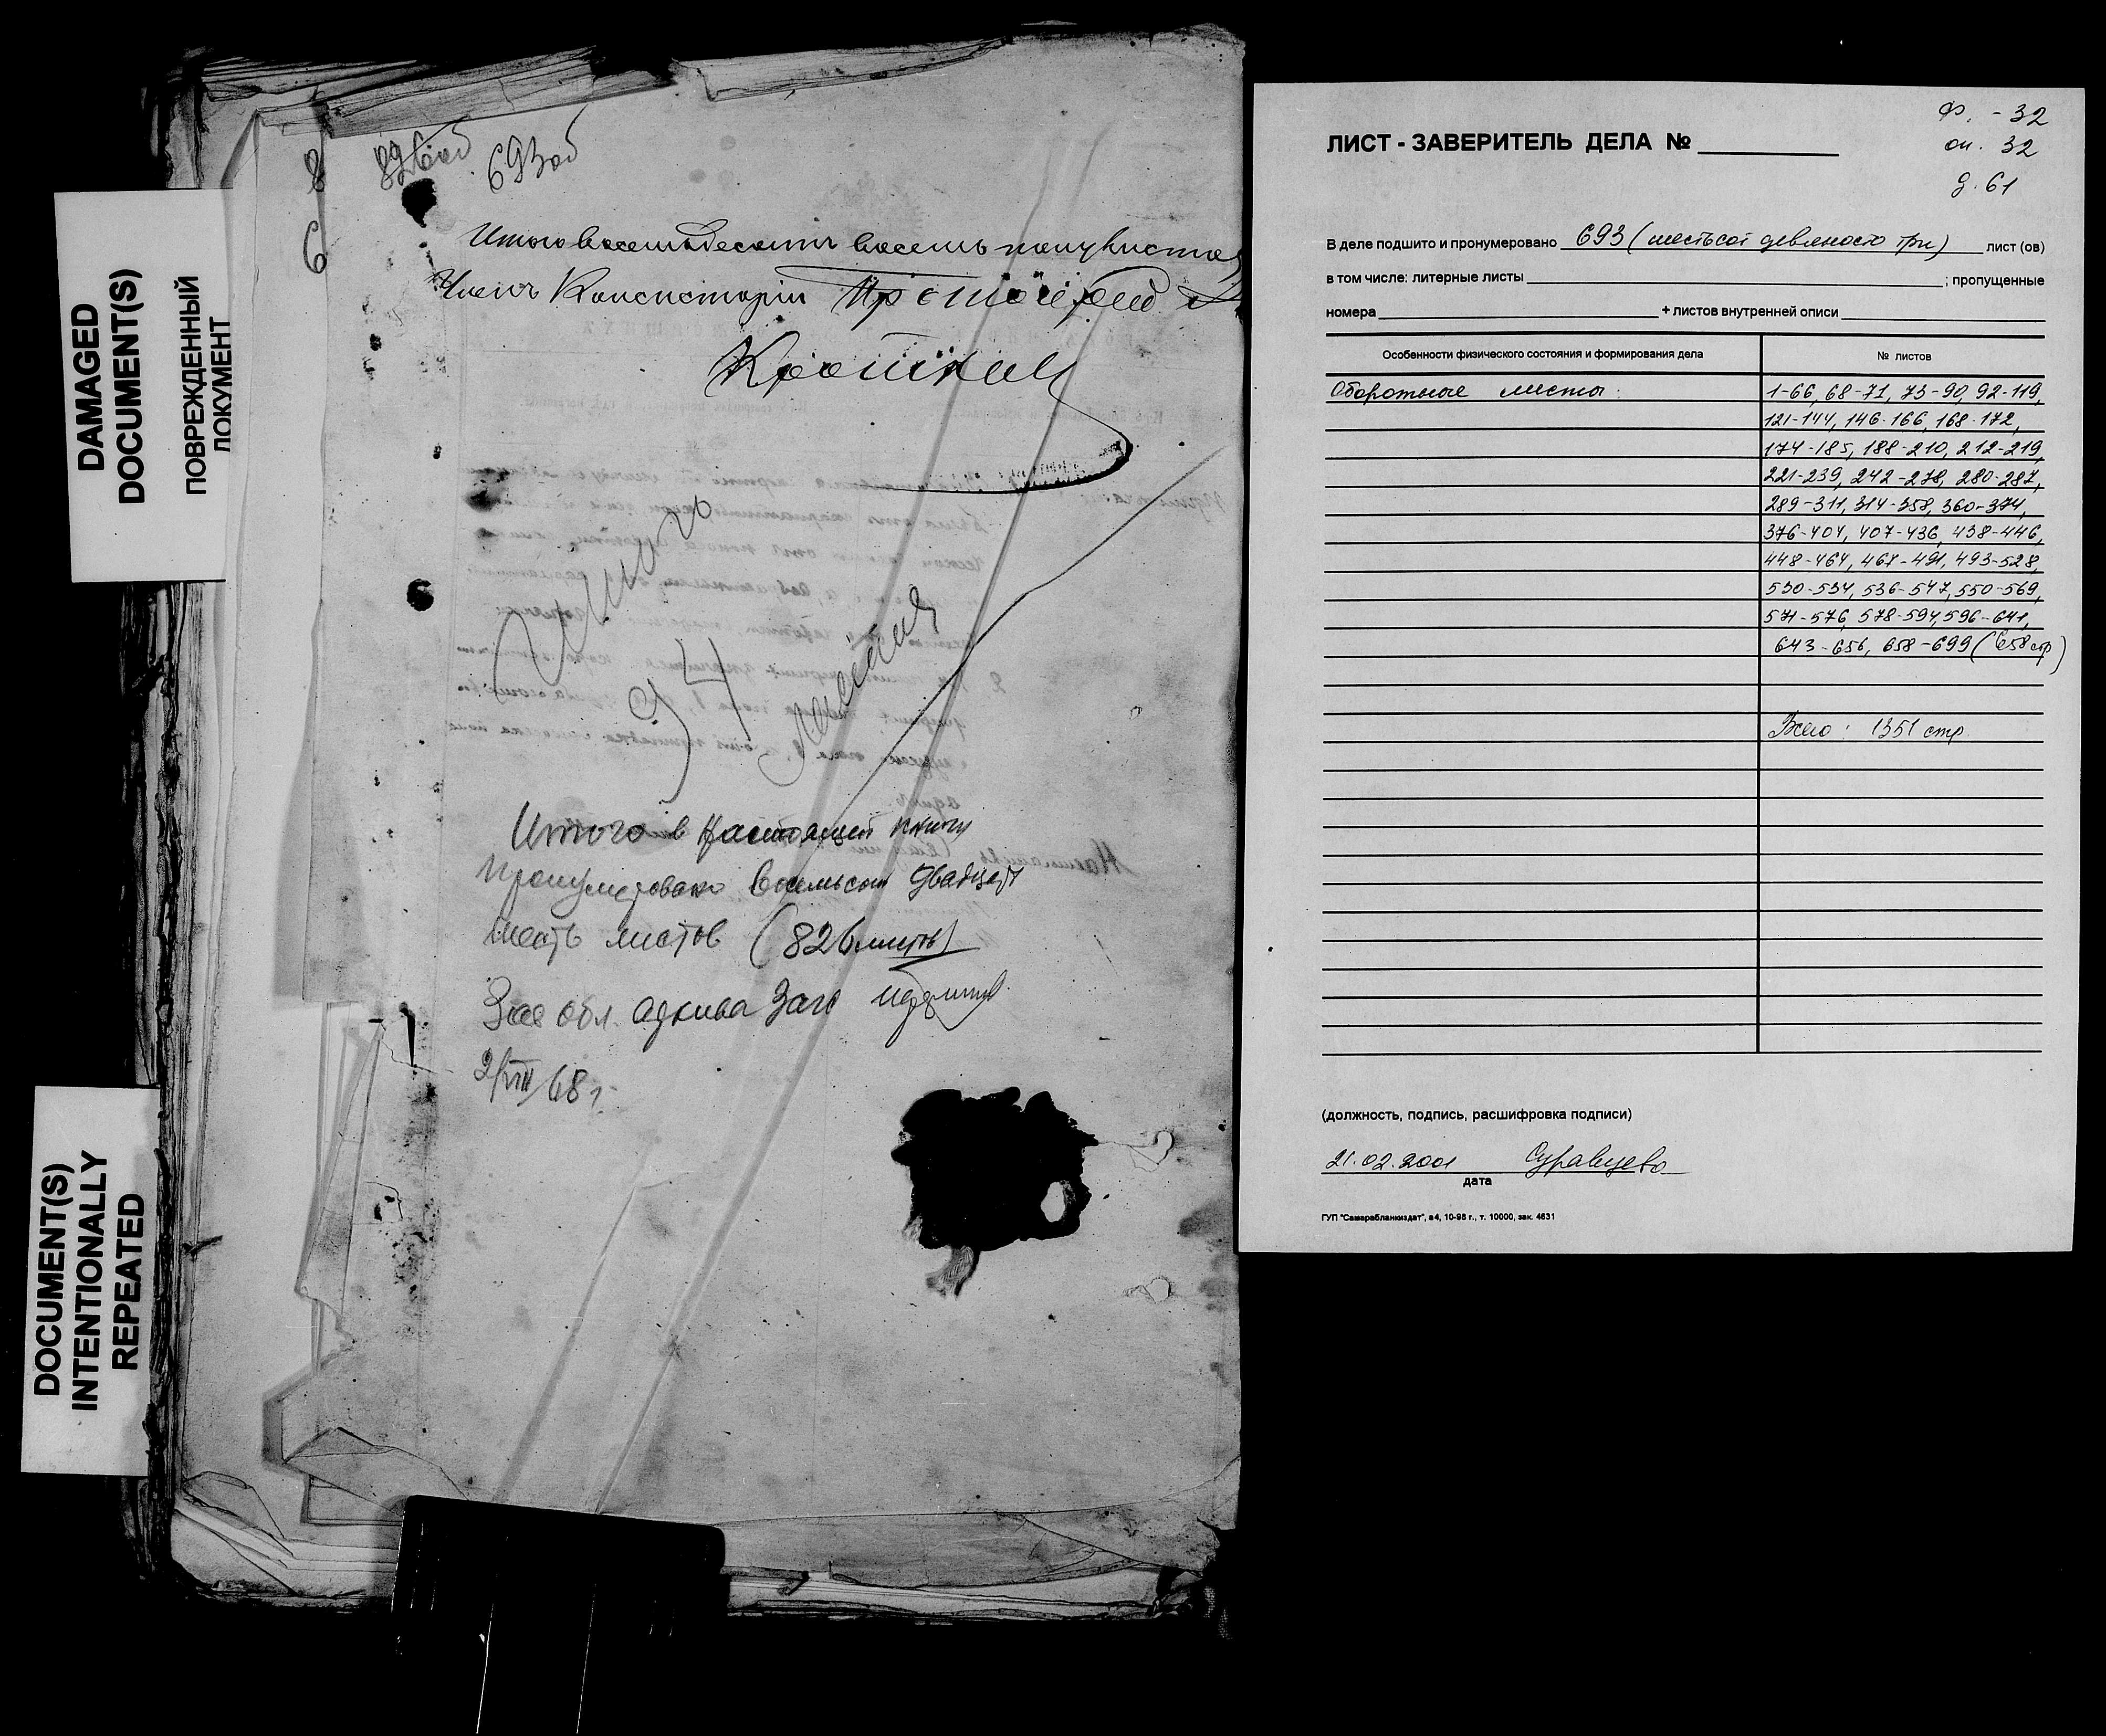 DAMAGED
DOCUMENT(S)
ПОВРЕЖДЕННЫЙ
ДОКУМЕНТ
DOCUMENT(S)
INTENTIONALLY
REPEATED
8
6
826об 693об
Итого восемьдесятъ восемь полулистов
Членъ Консисторіи Протоіерей
Итого
94
Итого в настоящей книги
Пронумеровано восемьсот двадцать
шесть листов (826 листов)
Зав обл. архива
2/VIII 68 г.
ф. - 32
оп. 32
д. 61
ЛИСТ - ЗАВЕРИТЕЛЬ ДЕЛА №
В деле подшито и пронумеровано 693 (шестьсот девяносто три) лист (ов)
в том числе: литерные листы ; пропущенные
номера + листов внутренней описи
Особенности физического состояния и формирования дела № листов
Оборотные листы: 1-66, 68-71, 73-90, 92-119,
121-144, 146-166, 168-172,
174-185, 188-210, 212-219,
221-239, 242-278, 280-287,
289-311, 314-358, 360-374,
376-404, 407-436, 438-446,
448-464, 467-491, 493-528,
530-534, 536-547, 550-569,
571-576, 578-594, 596-641,
643-656, 658-699 (658 стр)
Всего: 1351 стр
(должность, подпись, расшифровка подписи)
21.02.2001 Суравцева
дата
ГУП "Самарабланкиздат", а4, 10-98 г., т. 10000, зак. 4631